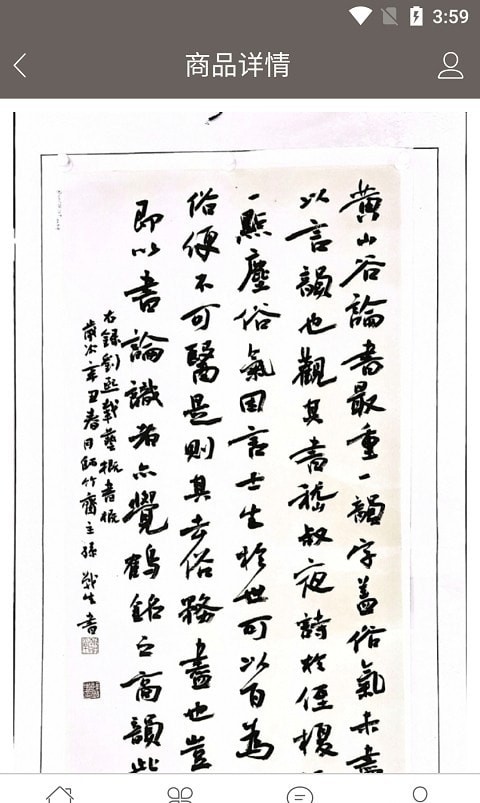 3:59
商品详情
黄山谷論書最重一韻字蓋俗氣未盡
以言韻也觀其書嵇叔夜詩於侄榎
一點塵俗氣因言士生於世可以百為
俗便不可醫是則其去俗務盡也豈
即以書論識者亦覺鶴銘之高韻此
右錄劉熙載藝概書概
歲次辛丑春月 竹齋主孫 書